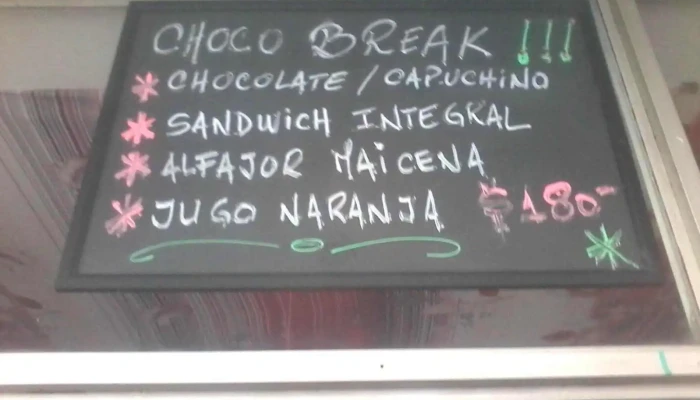 CHOCO BREAK !!!
* CHOCOLATE / CAPUCHINO
* SANDWICH INTEGRAL
* ALFAJOR MAICENA
* JUGO NARANJA $180-